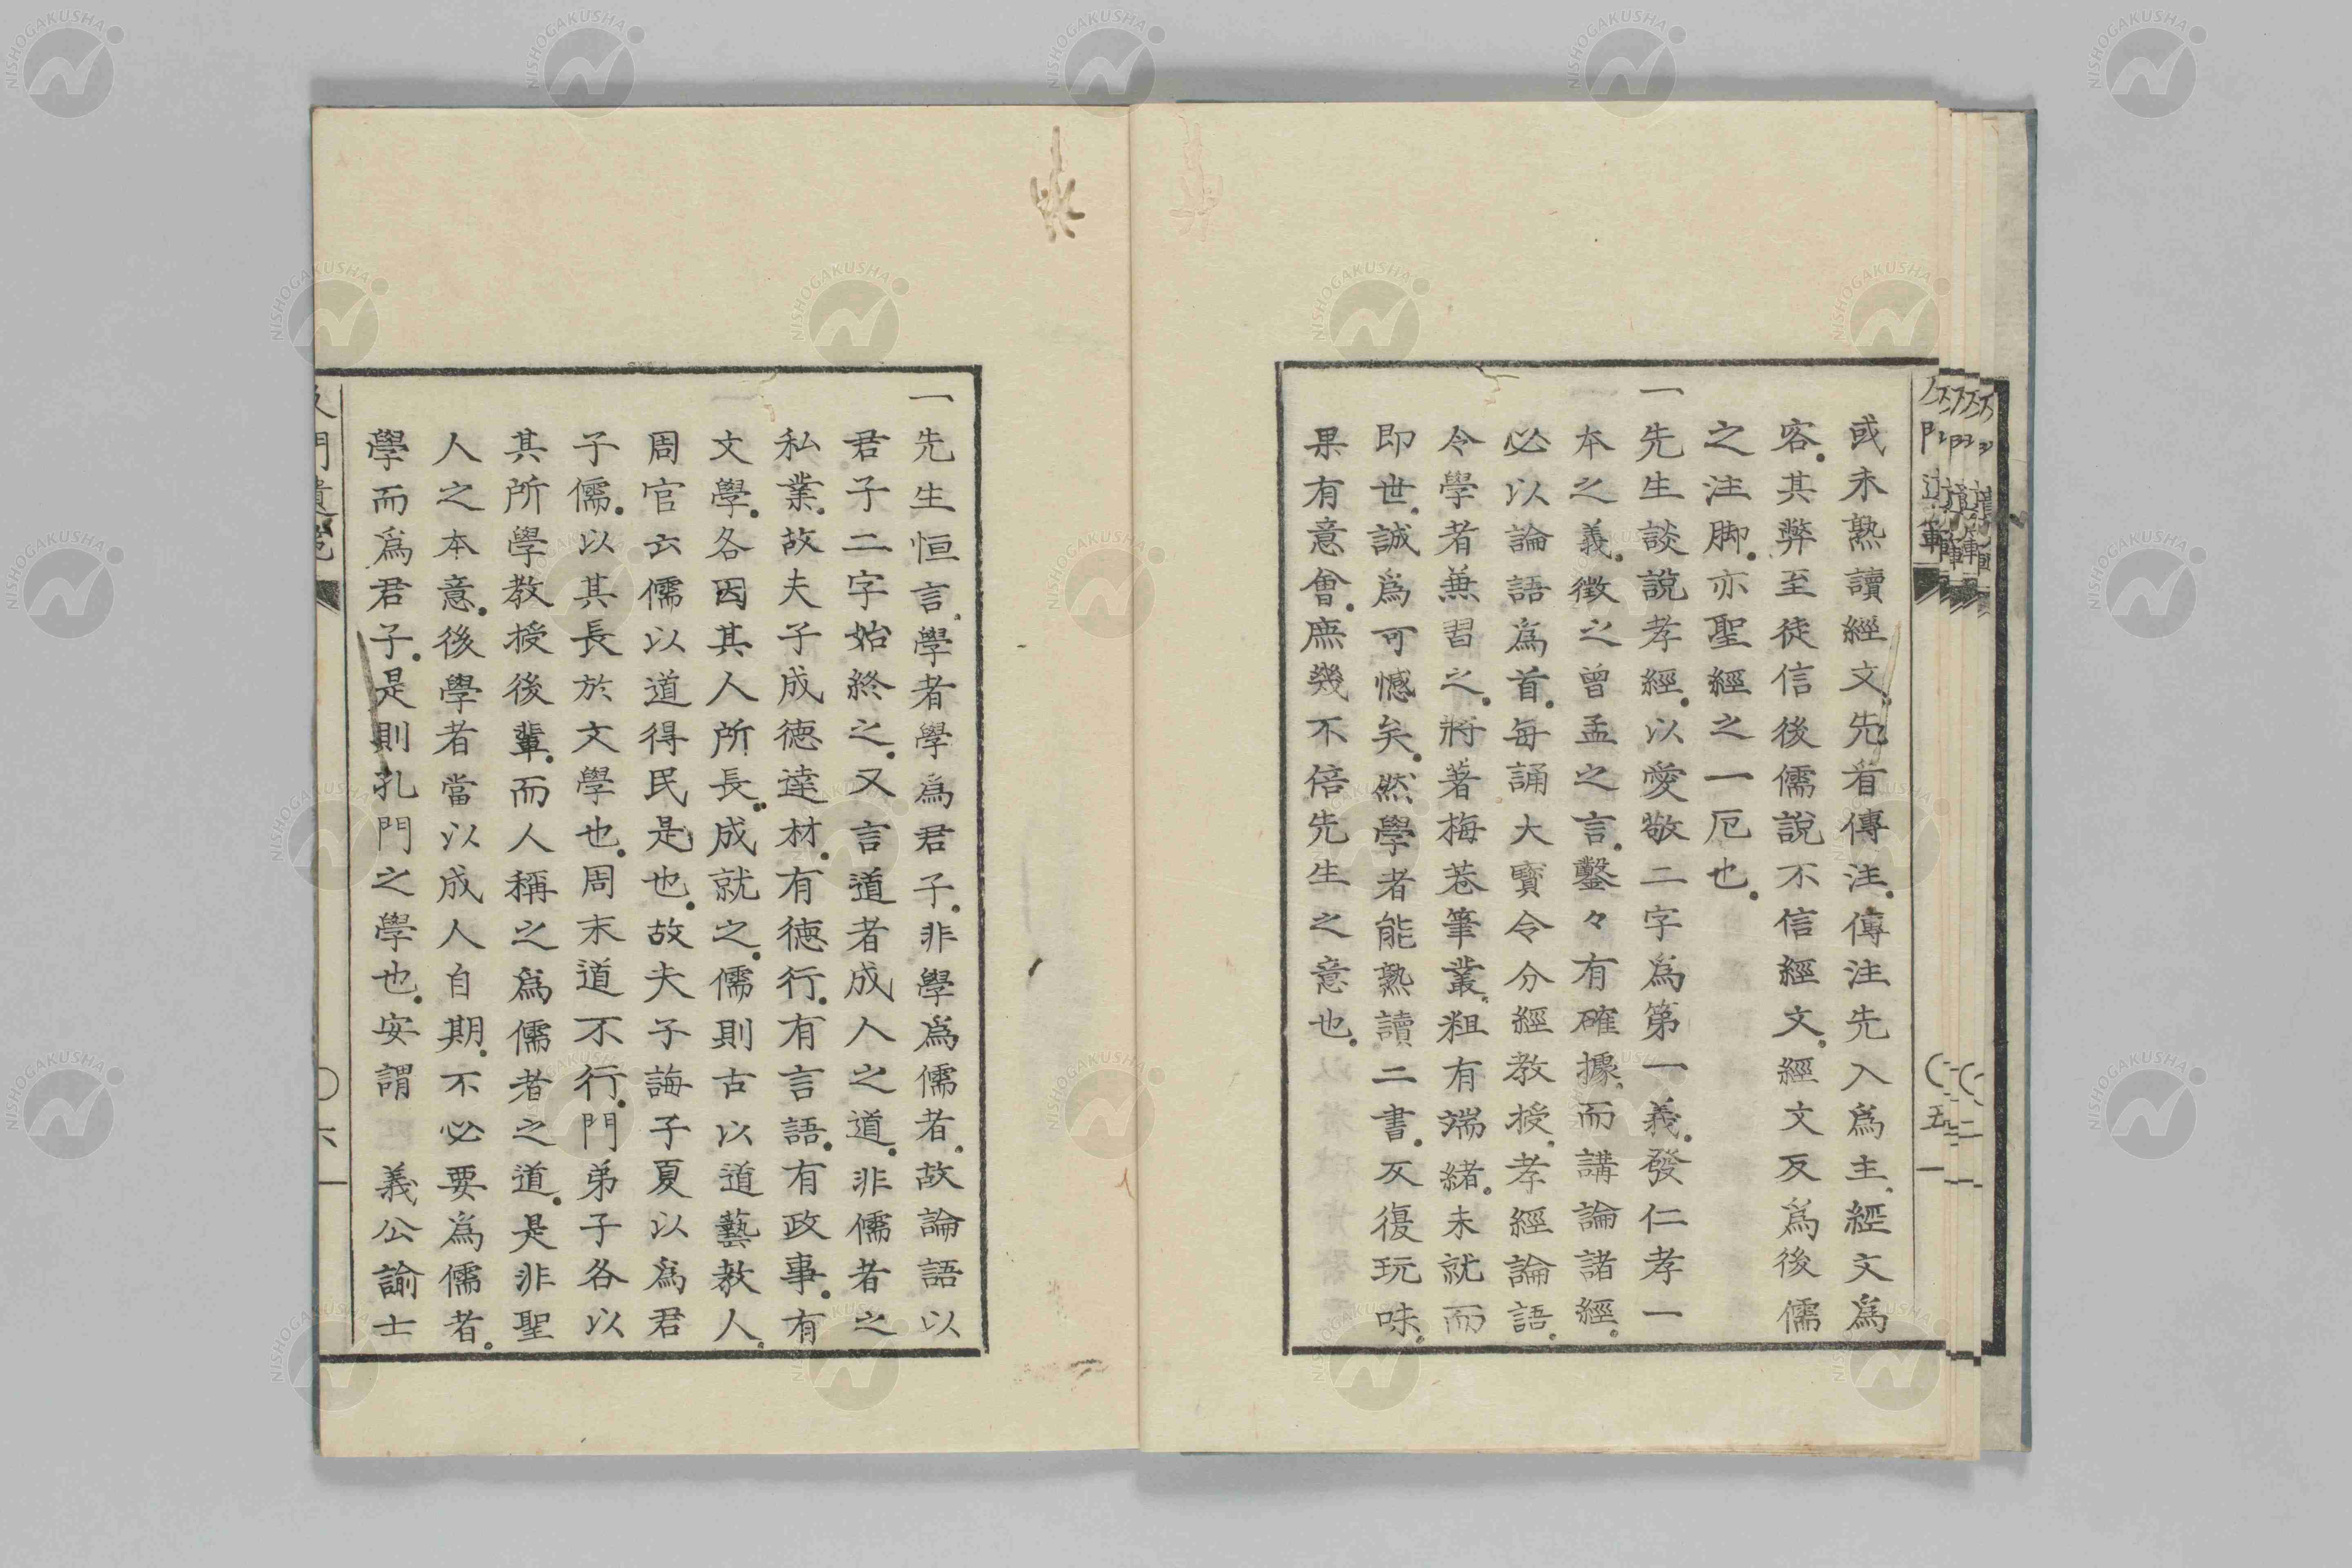 或未熟讀經文。先看傳注。傳注先入爲主。經文爲
客。其弊至徒信後儒說不信經文。經文反爲後儒
之注脚。亦聖經之一厄也。
一先生談說孝經。以愛敬二字爲第一義。發仁孝一
本之義。徵之曾孟之言。鑿々有確據。而講論諸經。
必以論語爲首。每誦大寶令分經教授。孝經論語。
令學者兼習之。將著梅巷筆叢。粗有端緒。未就而
即世。誠爲可憾矣。然學者能熟讀二書。反復玩味。
果有意會。庶幾不倍先生之意也。
一先生恒言。學者學爲君子。非學爲儒者。故論語以
君子二字始終之。又言道者成人之道。非儒者之
私業。故夫子成德達材。有德行。有言語。有政事。有
文學。各因其人所長。成就之。儒則古以道藝教人。
周官云儒以道得民是也。故夫子誨子夏以爲君
子儒。以其長於文學也。周末道不行。門弟子各以
其所學教授後輩。而人稱之爲儒者之道。是非聖
人之本意。後學者當以成人自期。不必要爲儒者。
學而爲君子。是則孔門之學也。安謂 義公諭士
五
六
NISHOGAKUSHA